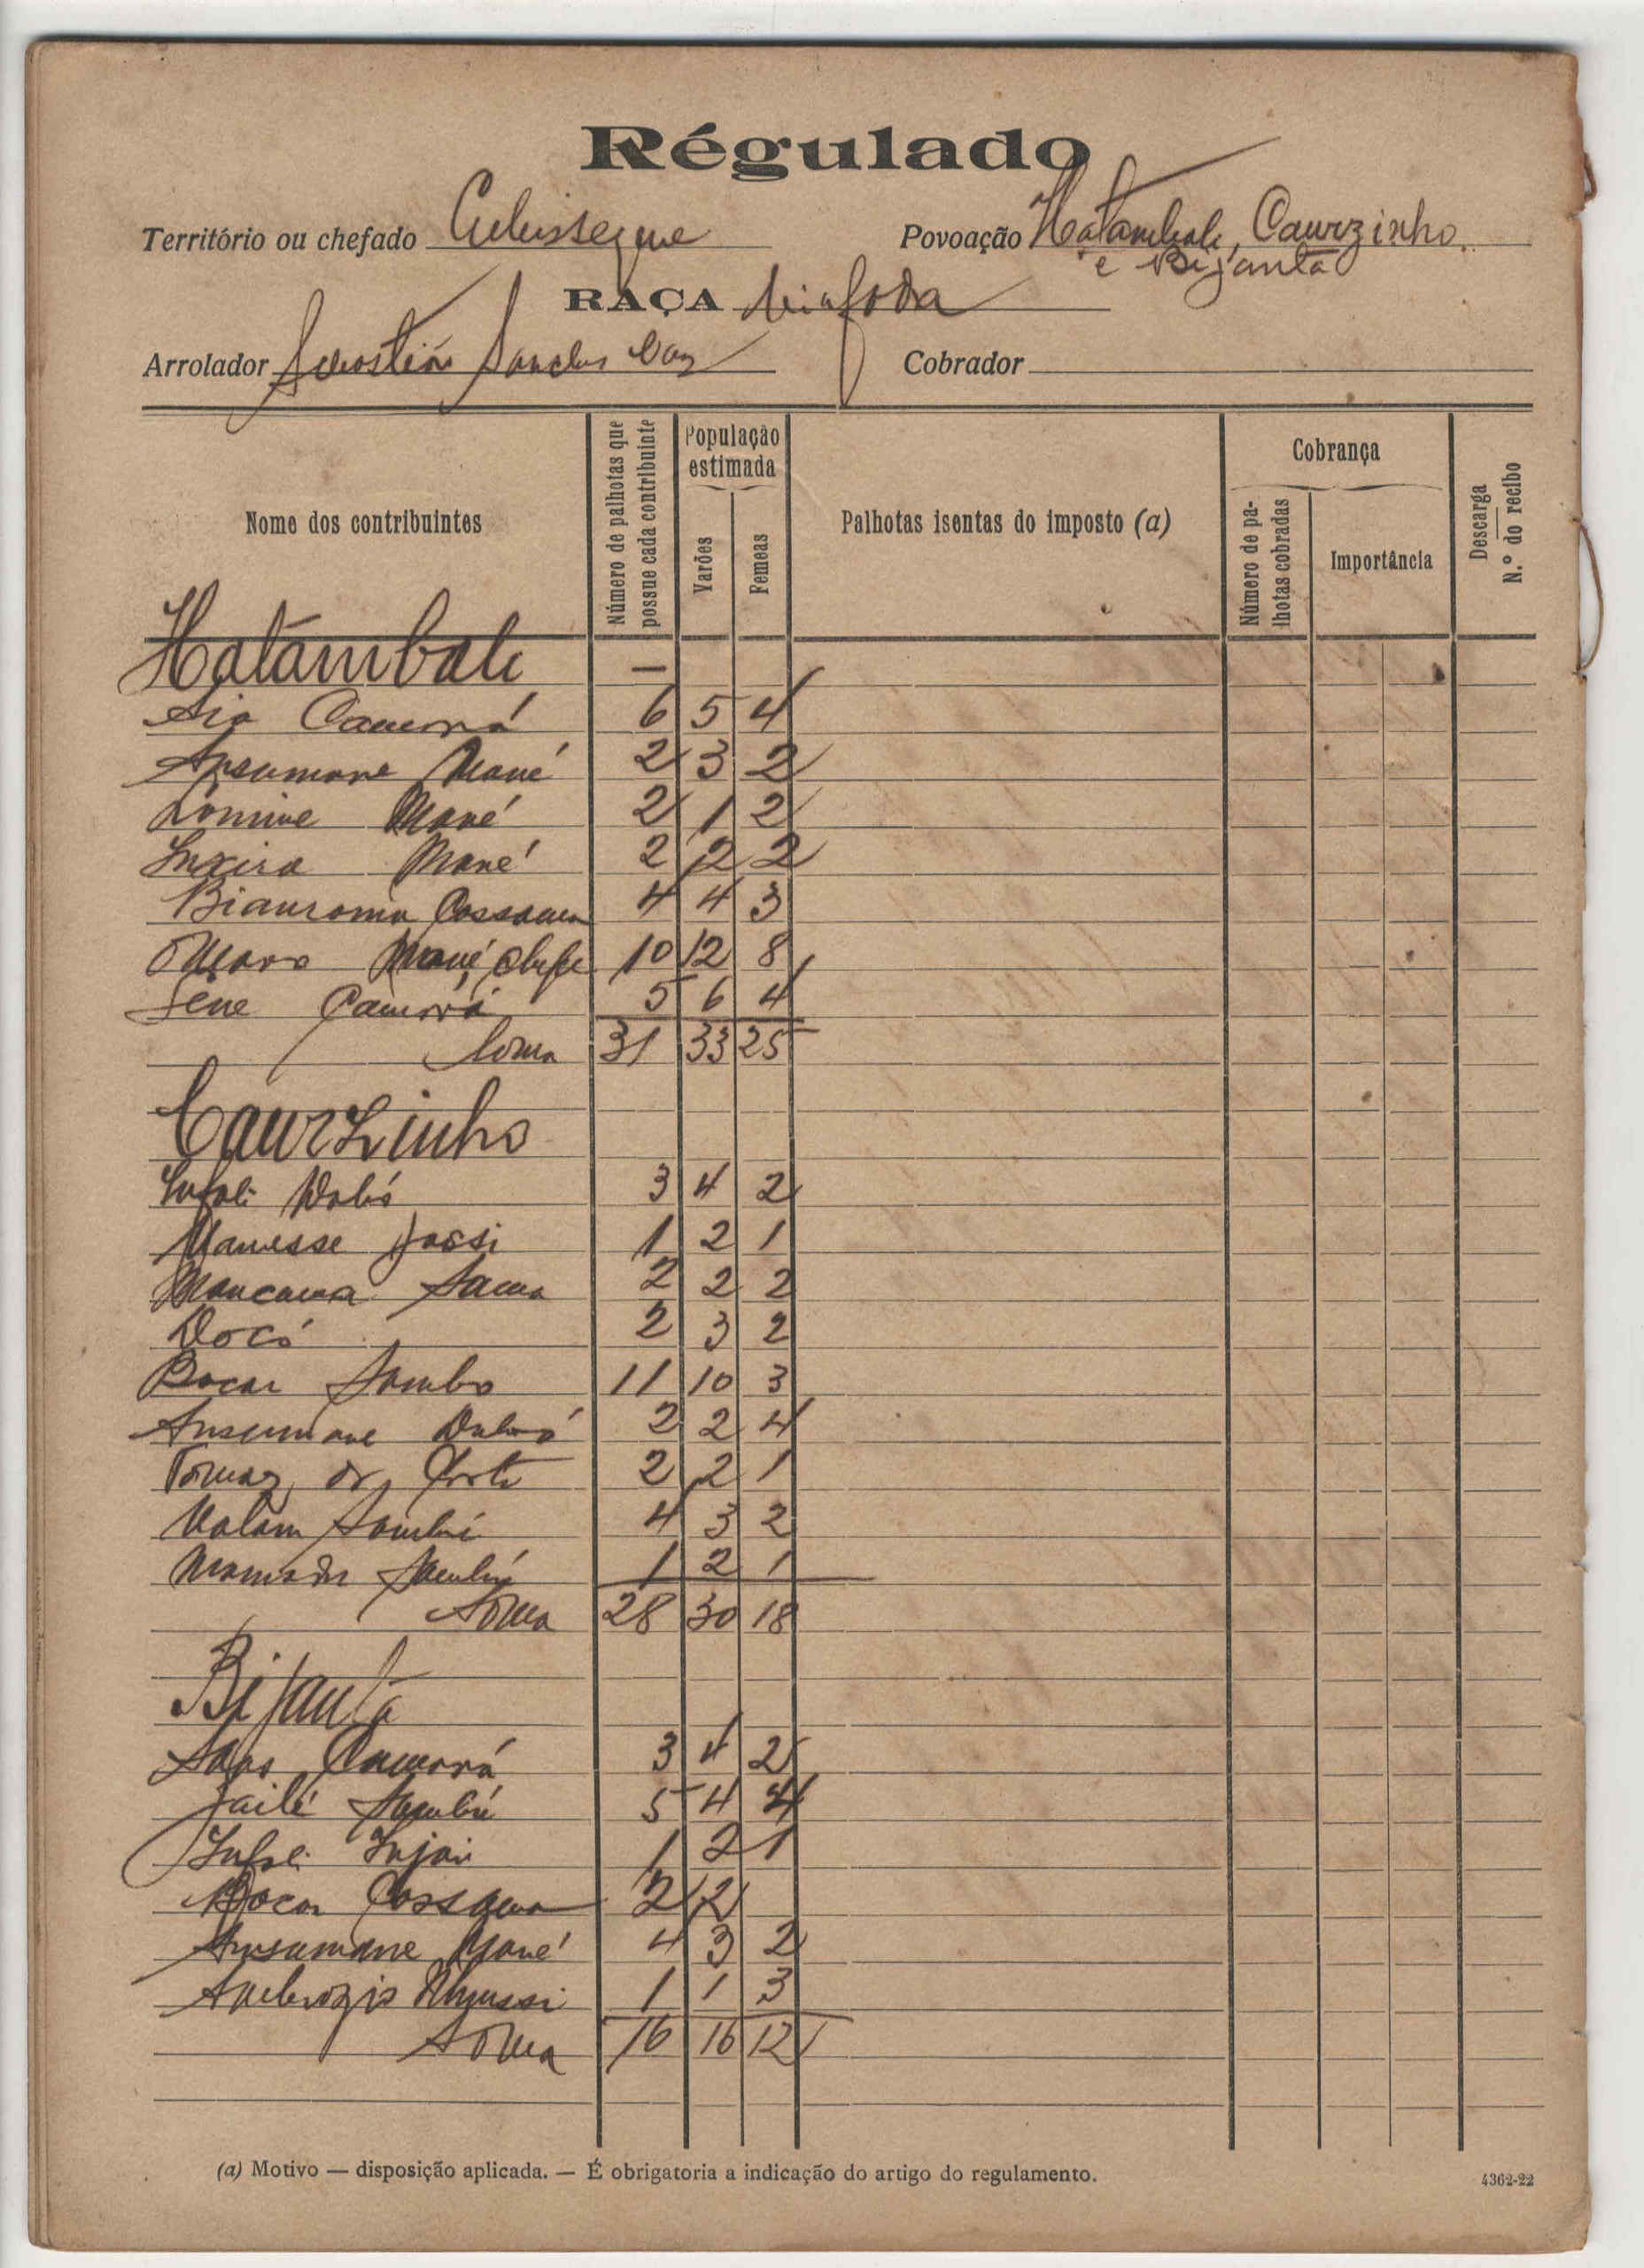 Régulado
Território ou chefado Cubisseque Povoação Hatambali, Caurzinho
e Bijanta
RAÇA Biafada
Arrolador Sebastião Sanches Vaz Cobrador
Nome dos contribuintes
Número de palhotas que possue cada contribuinte
População estimada
Varões
Femeas
Palhotas isentas do imposto (a)
Cobrança
Número de pa-
lhotas cobradas
Importância
Descarga
N.º do recibo
Hatambali —
Camará 6 5 4
Ansumane Mané 2 3 2
Lamine Mané 2 1 2
Mané 2 2 2
Cassama 4 4 3
Mané, chefe 10 12 8
Sene Camará 5 6 4
Soma 31 33 25
Caurzinho
Infali Dabó 3 4 2
Manesse Jassi 1 2 1
Mancama Sama 2 2 2
Docó 2 3 2
Bocar Sambo 11 10 3
Ansumane Dabó 2 2 4
Tomaz da Costa 2 2 1
Malam Sambú 4 3 2
Mamadu Sambú 1 2 1
Soma 28 30 18
Bijanta
Camará 3 4 2
Jailé Sambú 5 4 4
Infali Injai 1 2 1
Bocar Cassama 2 2
Ansumane Mané 4 3 2
Ambrozio 1 1 3
Soma 16 16 12
(a) Motivo — disposição aplicada. — É obrigatoria a indicação do artigo do regulamento.
4362-22